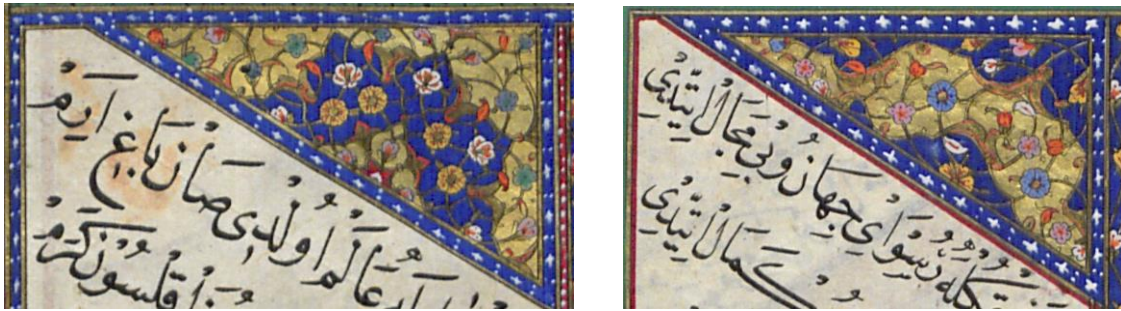 عالم اولدی صان باغ ارم
قلسون كرم
رسوای جهان و بی مجال ایتدی
كمال ایتدی